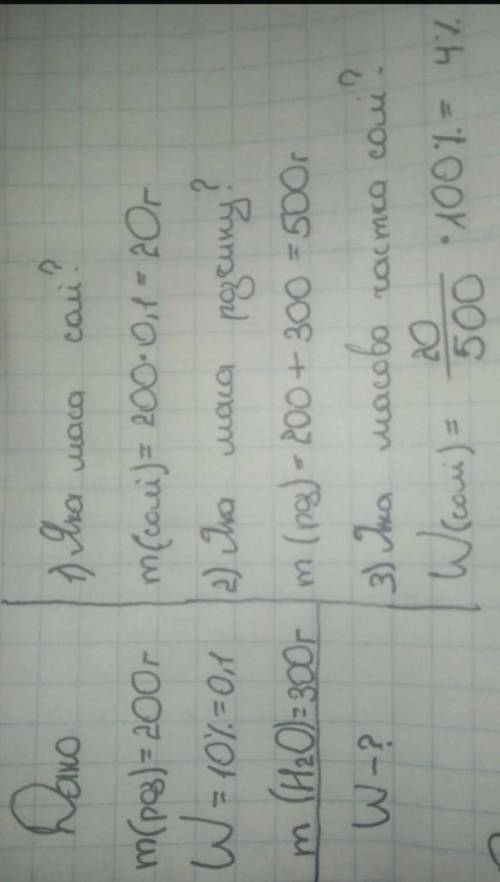 Дано
m(роз)=200г
W=10%=0,1
m(H₂O)=300г
W-?
1) Яка маса солі?
m(солі)=200•0,1=20г
2) Яка маса розчину?
m(роз)=200+300=500г
3) Яка масова частка солі?
W(солі)= 20/500 •100%= 4%